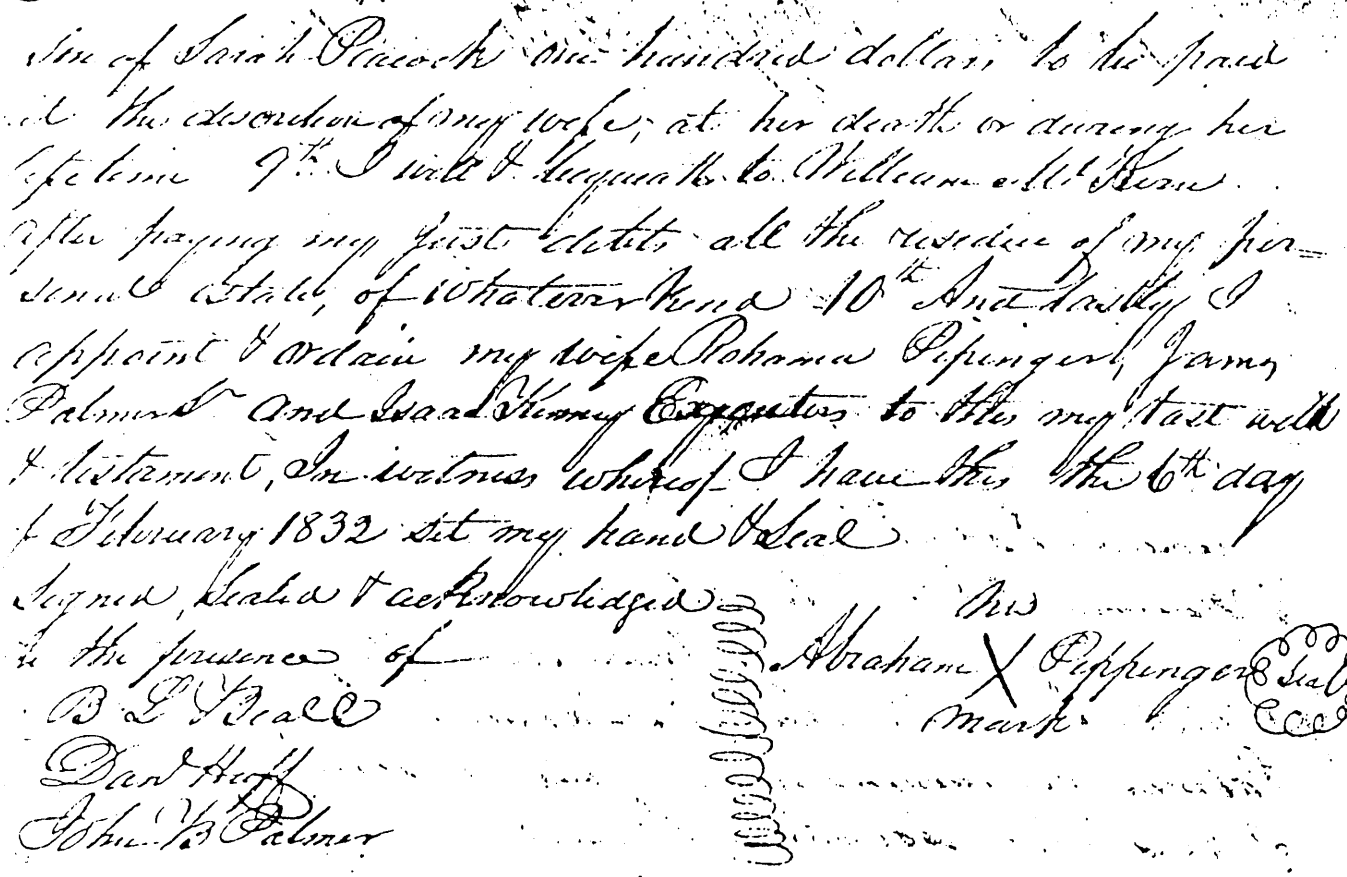 Son of Sarah Peacock one hundred dollars to be paid
at the discretion of my wife, at her death or during her
lifetime 9th I will & bequeath to William McKern
after paying my just debts all the residue of my per=
sonal estate, of whatever kind 10th And lastly I
appoint & ordain my wife Rohama Pipinger, James
Palmer Sr and Isaac Kinney Executors to this my last will
& testament, In witness whereof I have this the 6th day
of February 1832 set my hand & Seal
Signed, Sealed & acknowledged
in the presence of
his
Abraham X Pippinger Seal
mark
B L Beall
Danl Huff
John B Palmer